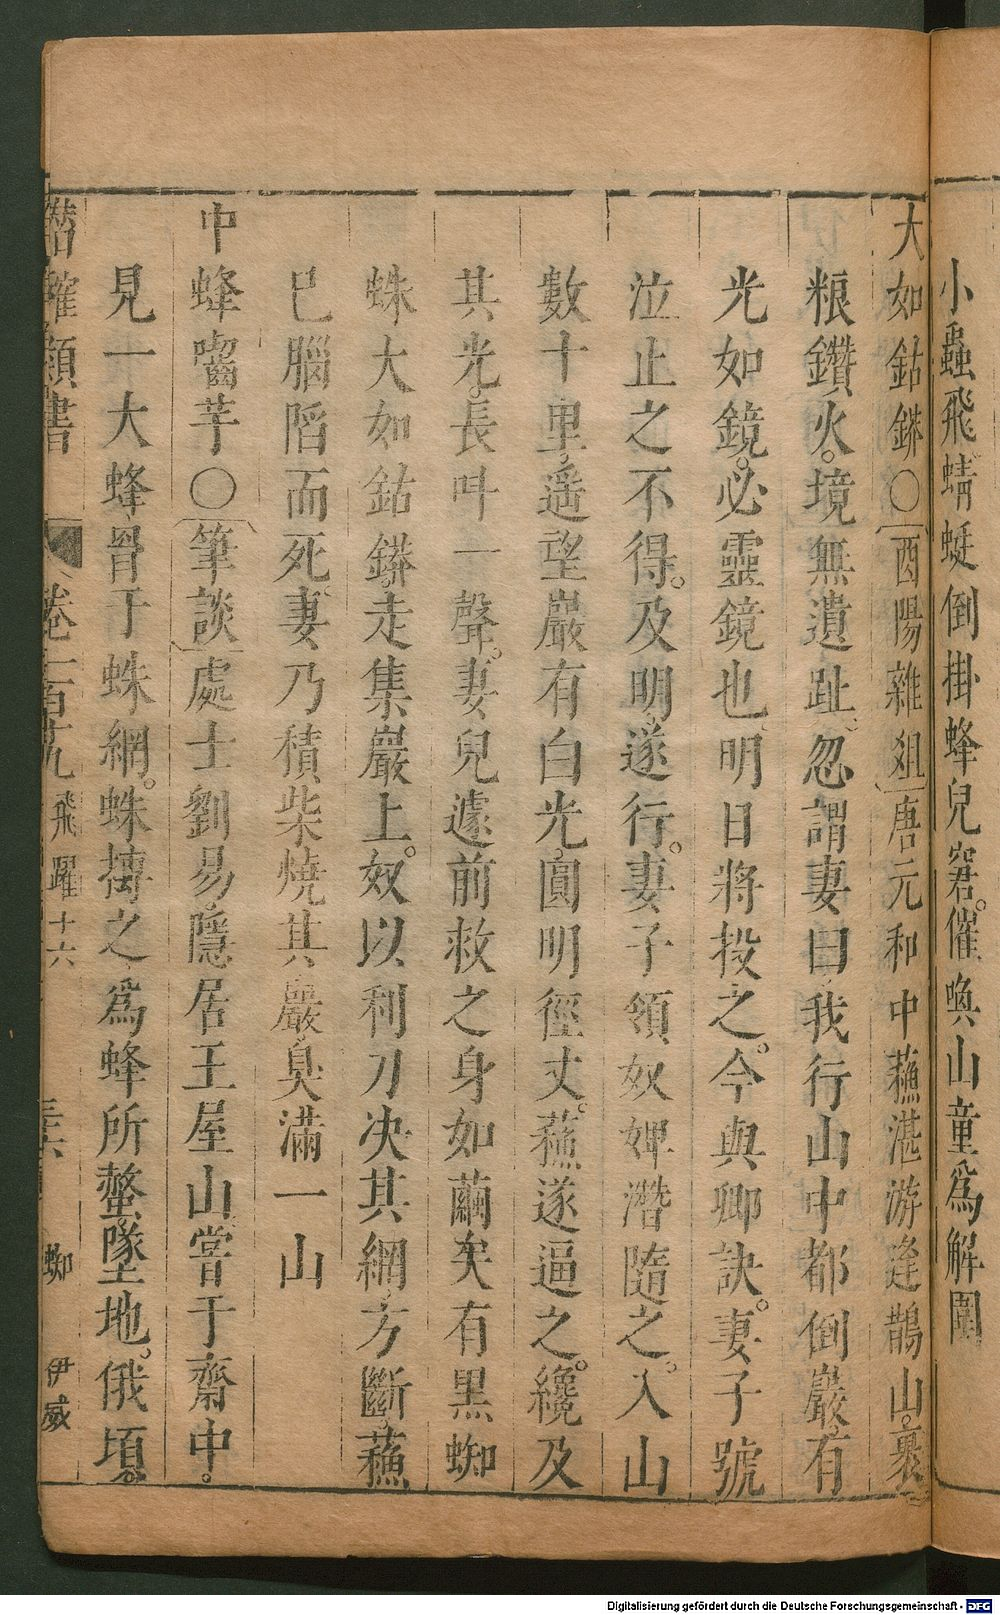 小蟲飛蜻蜓倒掛蜂兒窘。催喚山童爲解圍
大如鈷鏻○酉陽雜俎唐元和中蘓湛游逢鵲山。褁
粮鑽火。境無遺趾。忽謂妻曰我行山中都倒巖。有
光如鏡。必靈鏡也。明日將投之。今與卿訣。妻子號
泣止之不得。及明。遂行。妻子領奴婢潛隨之。入山
數十里。遥望巖有白光。圓明徑丈。蘓遂逼之。纔及
其光。長呌一聲。妻兒遽前救之身如繭矣有黒蜘
蛛大如鈷鏻。走集巖上。奴以利刀决其網。方斷。蘓
巳腦䧟而死。妻乃積柴燒其巖。臭滿一山
中蜂嚙芋○筆談處士劉易。隱居王屋山嘗于齋中。
見一大蜂罥于蛛網。蛛搏之。爲蜂所螫墜地。俄頃。
潛確類書 卷一百九 飛躍十六 蜘 伊威